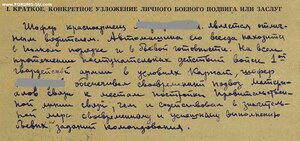 FORUMS-SU.COM
I. КРАТКОЕ, КОНКРЕТНОЕ ИЗЛОЖЕНИЕ ЛИЧНОГО БОЕВОГО ПОДВИГА ИЛИ ЗАСЛУГ
Шофер красноармеец является отлич-
ным водителем. Автомашина его всегда находится
в полном порядке и в боевой готовности. На всем
протяжении наступательных действий войск 1ой
гвардейской армии в условиях Карпат, шофер
обеспечивал своевременный подвоз матери-
алов связи к местам постройки Правительствен-
ной линии связи чем и содействовал в значитель-
ной мере своевременному и успешному выполнению
боевых заданий командования.